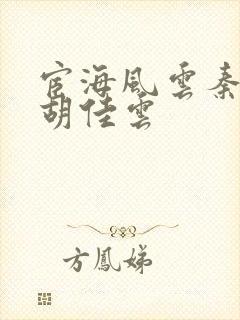 宦海風雲秦
胡佳雲
方鳳娣